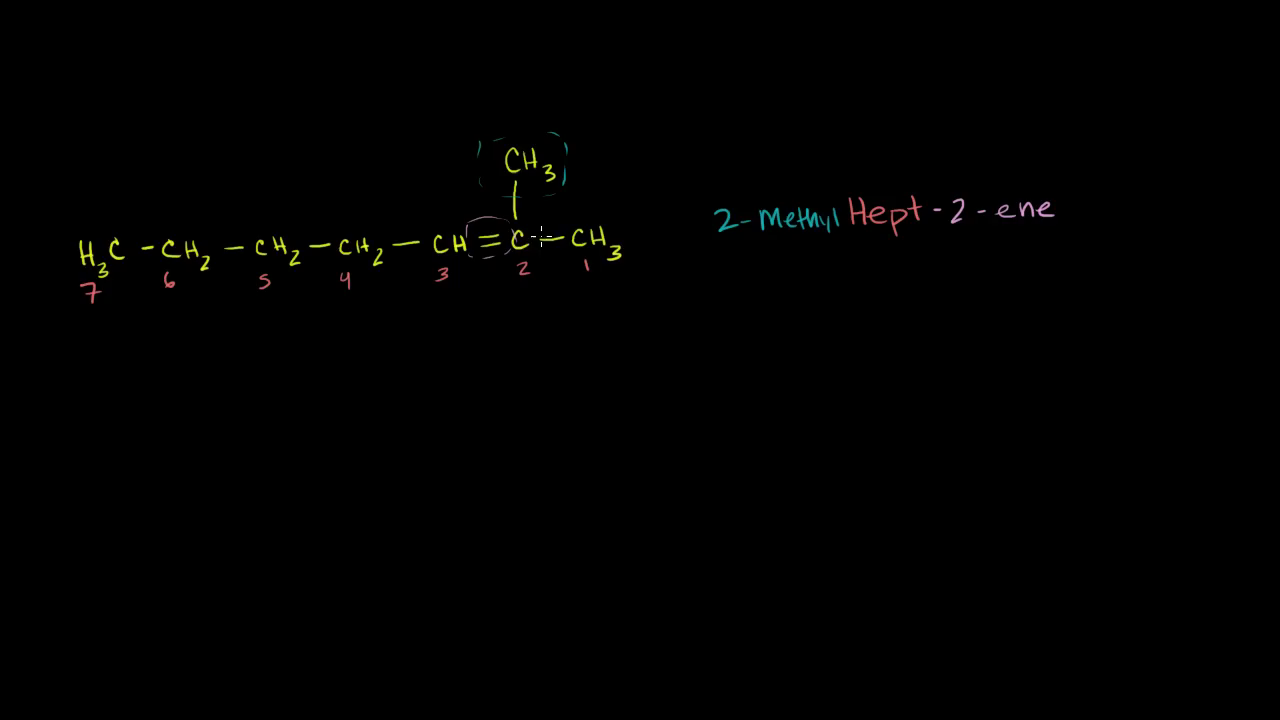 CH₃
H₃C - CH₂ - CH₂ - CH₂ - CH = C - CH₃
7 6 5 4 3 2 1
2-Methyl Hept-2-ene